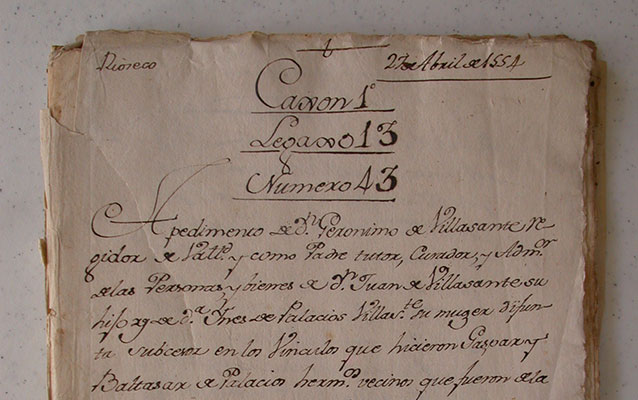 Rioseco
27 de Abril de 1554
Caxon 1º
Legaxo 13
Numero 43
Apedimento de Dn. Geronimo de Villasante Re-
gidor de Valld. y como Padre tutor, Curador, y Admr.
de las Personas, y bienes de Dn. Juan de Villasante su
hijo, y de Da. Ynes de Palacios Villaste. su muger difun-
ta subcesor en los Vinculos que hicieron Gaspar y
Baltasar de Palacios hermos. vecinos que fueron de la